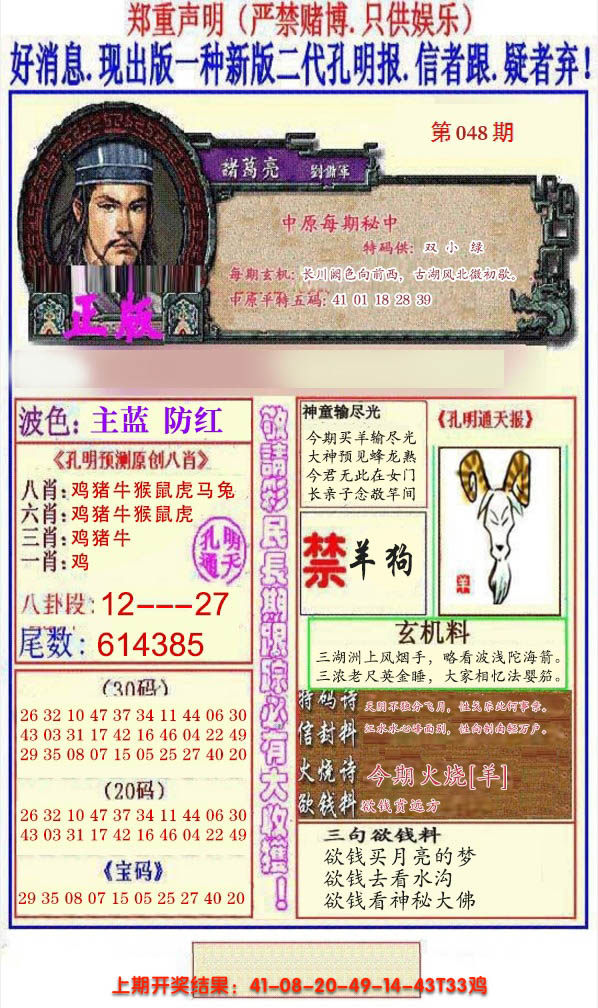 郑重声明（严禁赌博.只供娱乐）
好消息.现出版一种新版二代孔明报.信者跟.疑者弃！
第048期
諸葛亮 劉備軍
中原每期秘中
特码供：双 小 绿
每期玄机：长川阙色向前西，古湖风北微初歇。
中原平特五码：41 01 18 28 39
正版
波色：主蓝 防红
《孔明预测原创八肖》
八肖：鸡猪牛猴鼠虎马兔
六肖：鸡猪牛猴鼠虎
三肖：鸡猪牛
一肖：鸡
孔明
通天
八卦段：12---27
尾数：614385
（30码）
26 32 10 47 37 34 11 44 06 30
43 03 31 17 42 16 46 04 22 49
29 35 08 07 15 05 25 27 40 20
（20码）
26 32 10 47 37 34 11 44 06 30
43 03 31 17 42 16 46 04 22 49
《宝码》
29 35 08 07 15 05 25 27 40 20
敬請彩民長期跟踪必有大收獲！
神童输尽光
今期买羊输尽光
大神预见蜂龙熟
今君无此在女门
长亲子念敬竿间
禁羊狗
《孔明通天报》
羊
玄机料
三湖洲上风烟手，略看波浅陀海箭。
三浓老尺英金睡，大家相忆法婴茄。
特码诗
天阴不独分飞月，性欠乐此何事亲。
信封料
江水水心峰面别，性向制南轻万户。
火烧诗
今期火烧[羊]
欲钱料
欲钱赏远方
三句欲钱料
欲钱买月亮的梦
欲钱去看水沟
欲钱看神秘大佛
上期开奖结果：41-08-20-49-14-43T33鸡